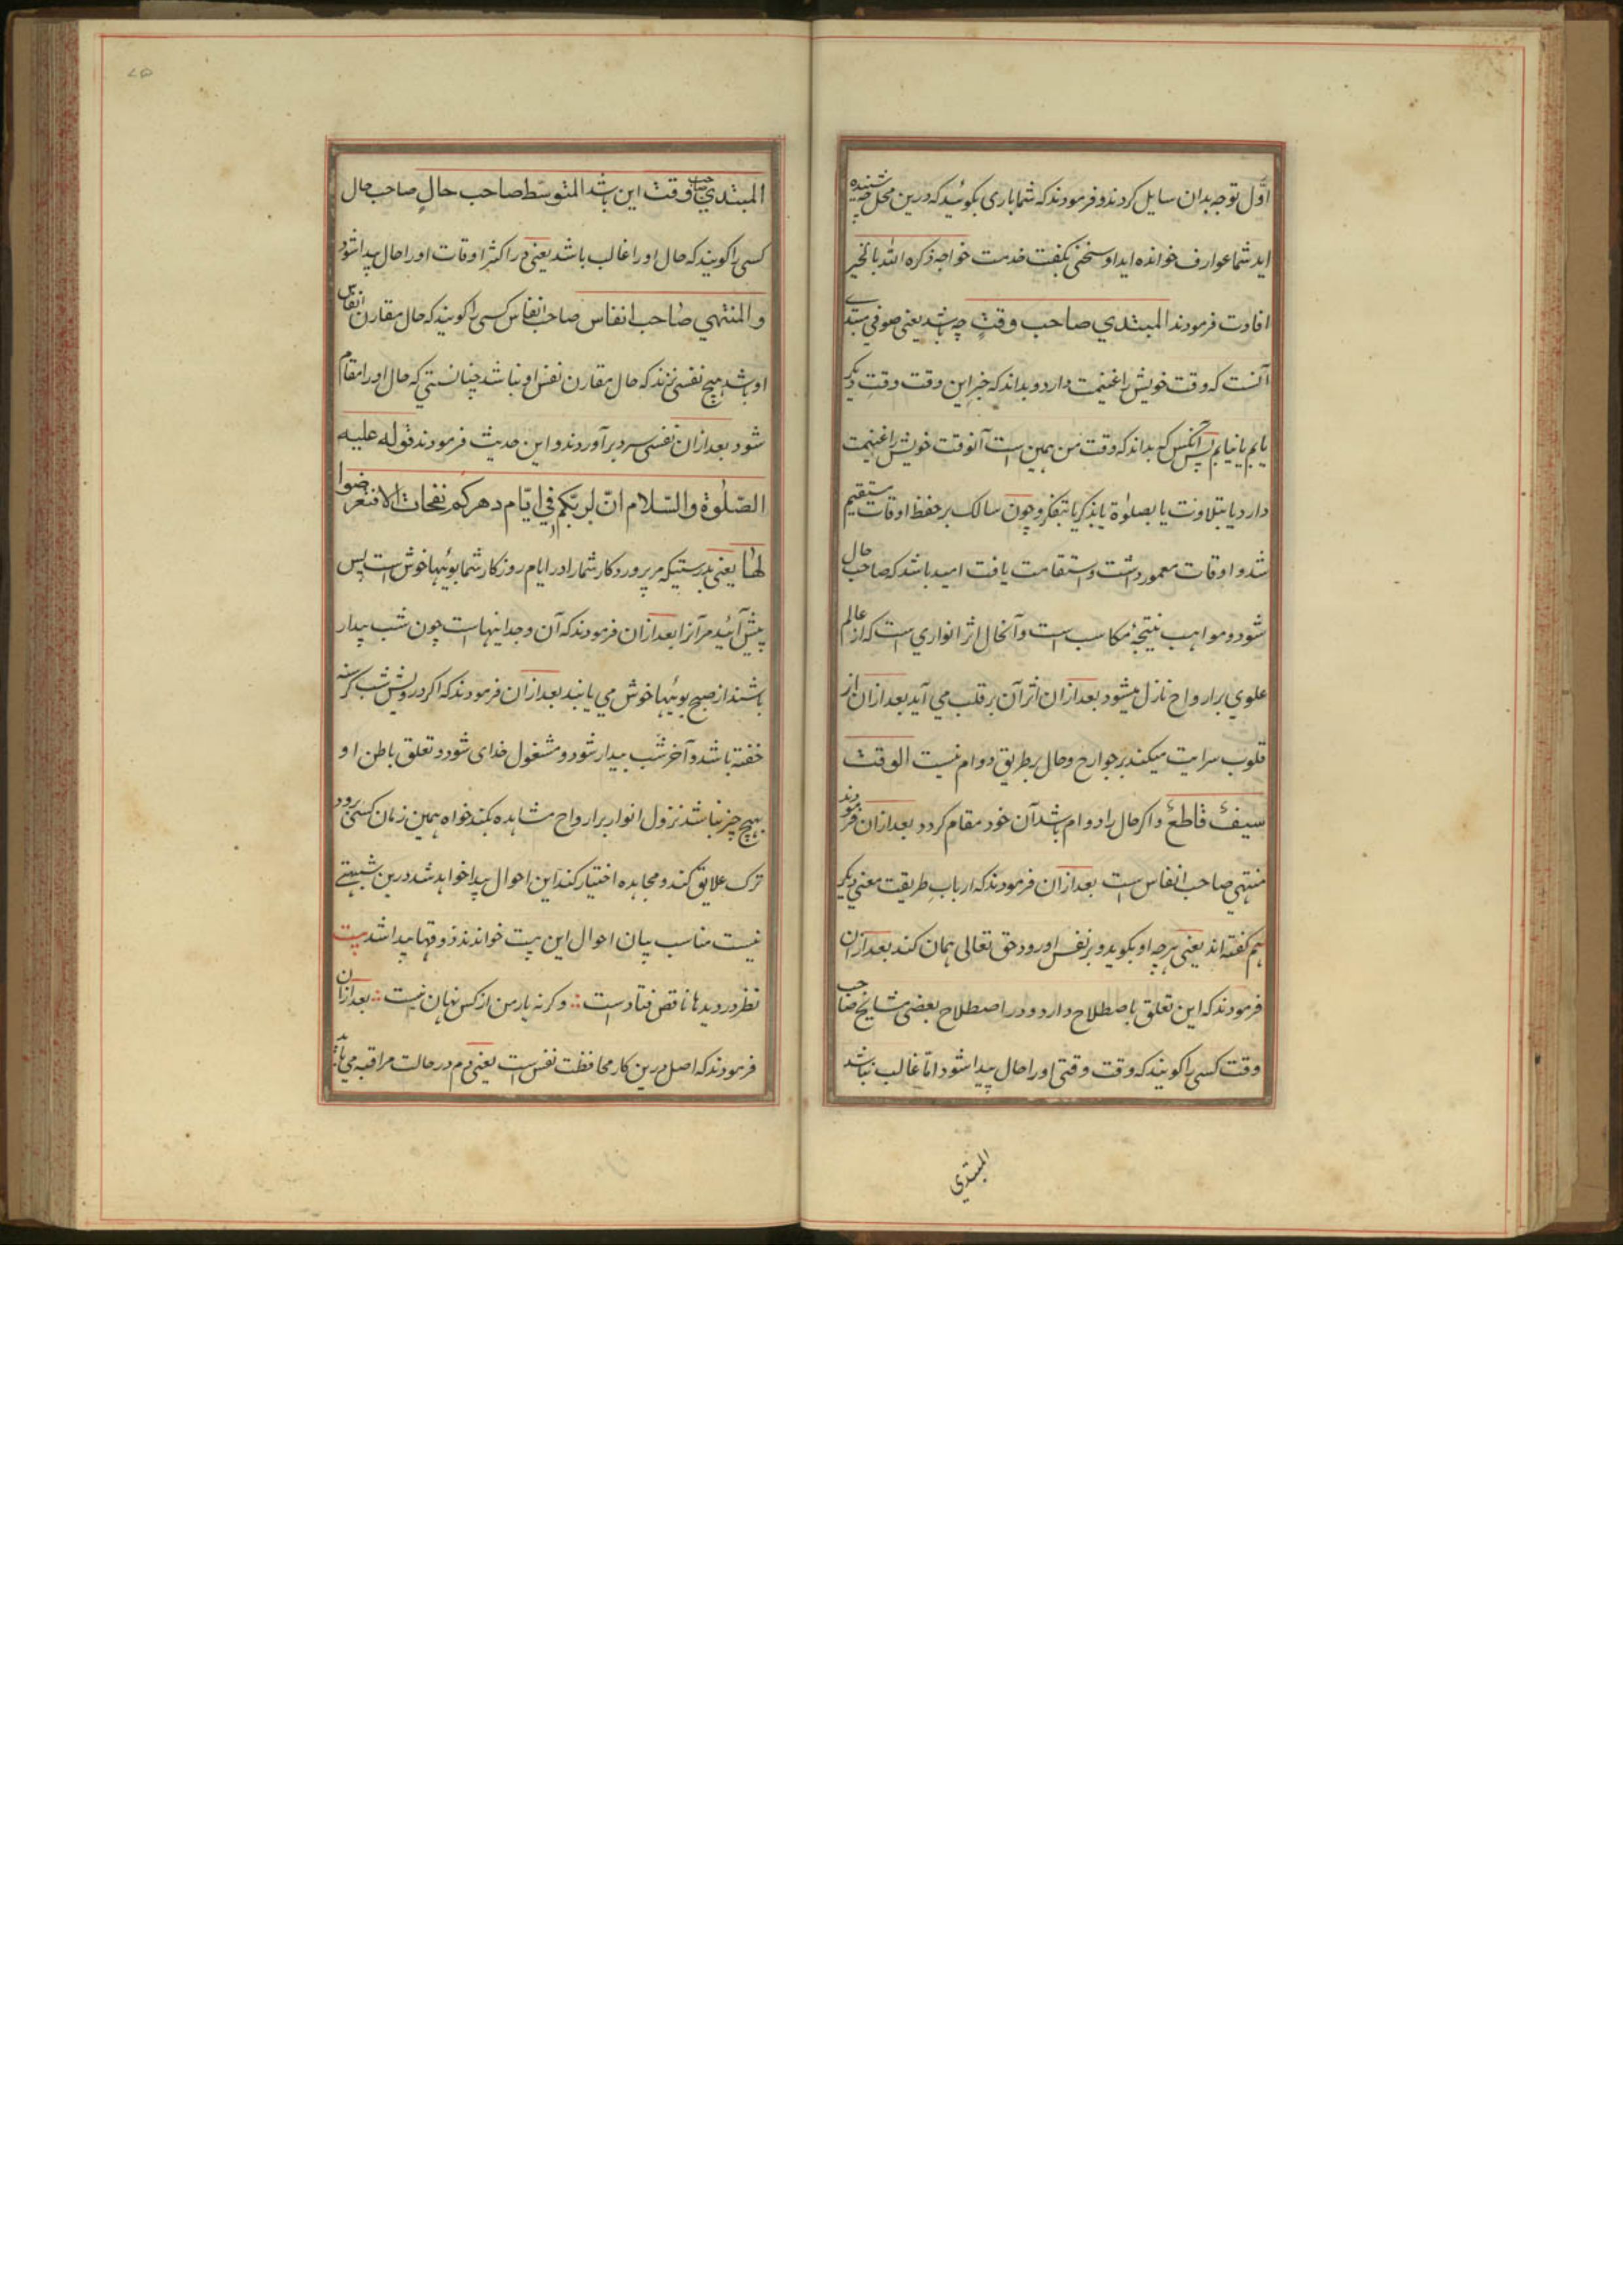 اوّل توجه بدان سایل کردند و فرمودند که شما باری بکوئید که درین محل چه شنیده
اید شما عوارف خوانده اید او سخنی نکفت خدمت خواجه ذکره الله بالخیر
افادت فرمودند المبتدي صاحب وقتٍ چه باشد یعنی صوفی مبتدی
آنست که وقت خویش را غنیمت دارد و بداند که جز این وقت وقتِ دیکر
یابم یا نیابم پس آنکس که بداند که وقت من همین است آنوقت خویش را غنیمت
دارد یا بتلاوت یا بصلوٰة یا بذکر یا بتفکر و چون سالک بر حفظ اوقات مستقیم
شد و اوقات معمور داشت و استقامت یافت امید باشد که صاحب حال
شود و مواهب نتیجهٔ مکاسب است و آنحال اثر انواری است که از عالم
علوي بر ارواح نازل میشود بعد ازان اثر آن بر قلب می آید بعد ازان از
قلوب سرایت میکند بر جوارح و حال بر طریق دوام نیست الوقت
سیفٌ قاطعٌ و اکر حال را دوام باشد آن خود مقام کردد بعد ازان فرمودند
منتهي صاحب انفاس است بعد ازان فرمودند که اربابِ طریقت معنی دیکر
هم کفته اند یعنی هرچه او بکوید و بر نفس او رود حق تعالی همان کند بعد ازان
فرمودند که این تعلق باصطلاح دارد و در اصطلاح بعضی مشایخ صاحب
وقت کسی را کویند که وقت وقتی او را حال پیدا شود امّا غالب نباشد
المبتدي
۷۵
المبتدي صاحب وقت این باشد المتوسّط صاحب حالٍ صاحب حال
کسی را کویند که حال او را غالب باشد یعنی در اکثر اوقات او را حال پیدا شود
و المنتهي صاحب انفاس صاحب انفاس کسی را کویند که حال مقارن انفاس
او باشد هیچ نفسی نزند که حال مقارن نفس او نباشد چنانستي که حال او را مقام
شود بعد ازان نفسی سرد بر آوردند و این حدیث فرمودند قوله علیه
الصّلوة والسّلام انّ لربّکم في ایّام دهرکم نفحات الا فتعرّضوا
لها یعنی بدرستیکه مر پروردکار شما را در ایام روزکار شما بوئیها خوش است پس
پیش آئید مر آنرا بعد ازان فرمودند که آن وجدانیهاست چون شب بیدار
باشند از صبح بوئیها خوش می یابند بعد ازان فرمودند که اکر درویش شب کرسنه
خفته باشد و آخر شب بیدار شود و مشغول خدای شود و تعلق باطن او
بهیچ چیز نباشد نزول انوار بر ارواح مشاهده بکند خواه همین زمان کسی رود
ترک علایق کند و مجاهده اختیار کند این احوال پیدا خواهد شد درین شبهتی
نیست مناسب بیان احوال این بیت خواندند ذوقها پیدا شد بیت
نظر در دیدها ناقص فتادست ∴ وکرنه یار من از کس نهان نیست ∴ بعد ازان
فرمودند که اصل درین کار محافظت نفس است یعنی دم در حالت مراقبه می باید